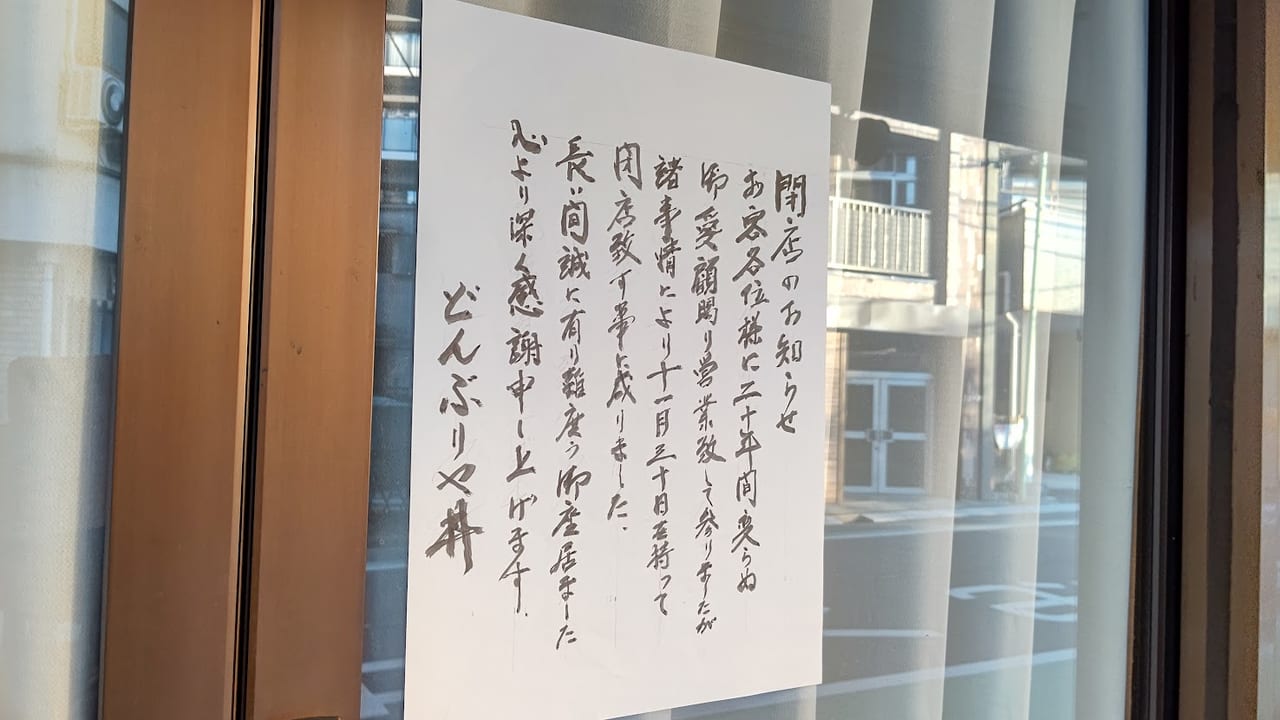 閉店のお知らせ
お客各位様に二十年間変らぬ
御愛顧賜り営業致して参りましたが
諸事情により十一月三十日を持って
閉店致す事に成りました、
長い間誠に有り難度う御座居ました
心より深く感謝申し上げます。
どんぶりや丼